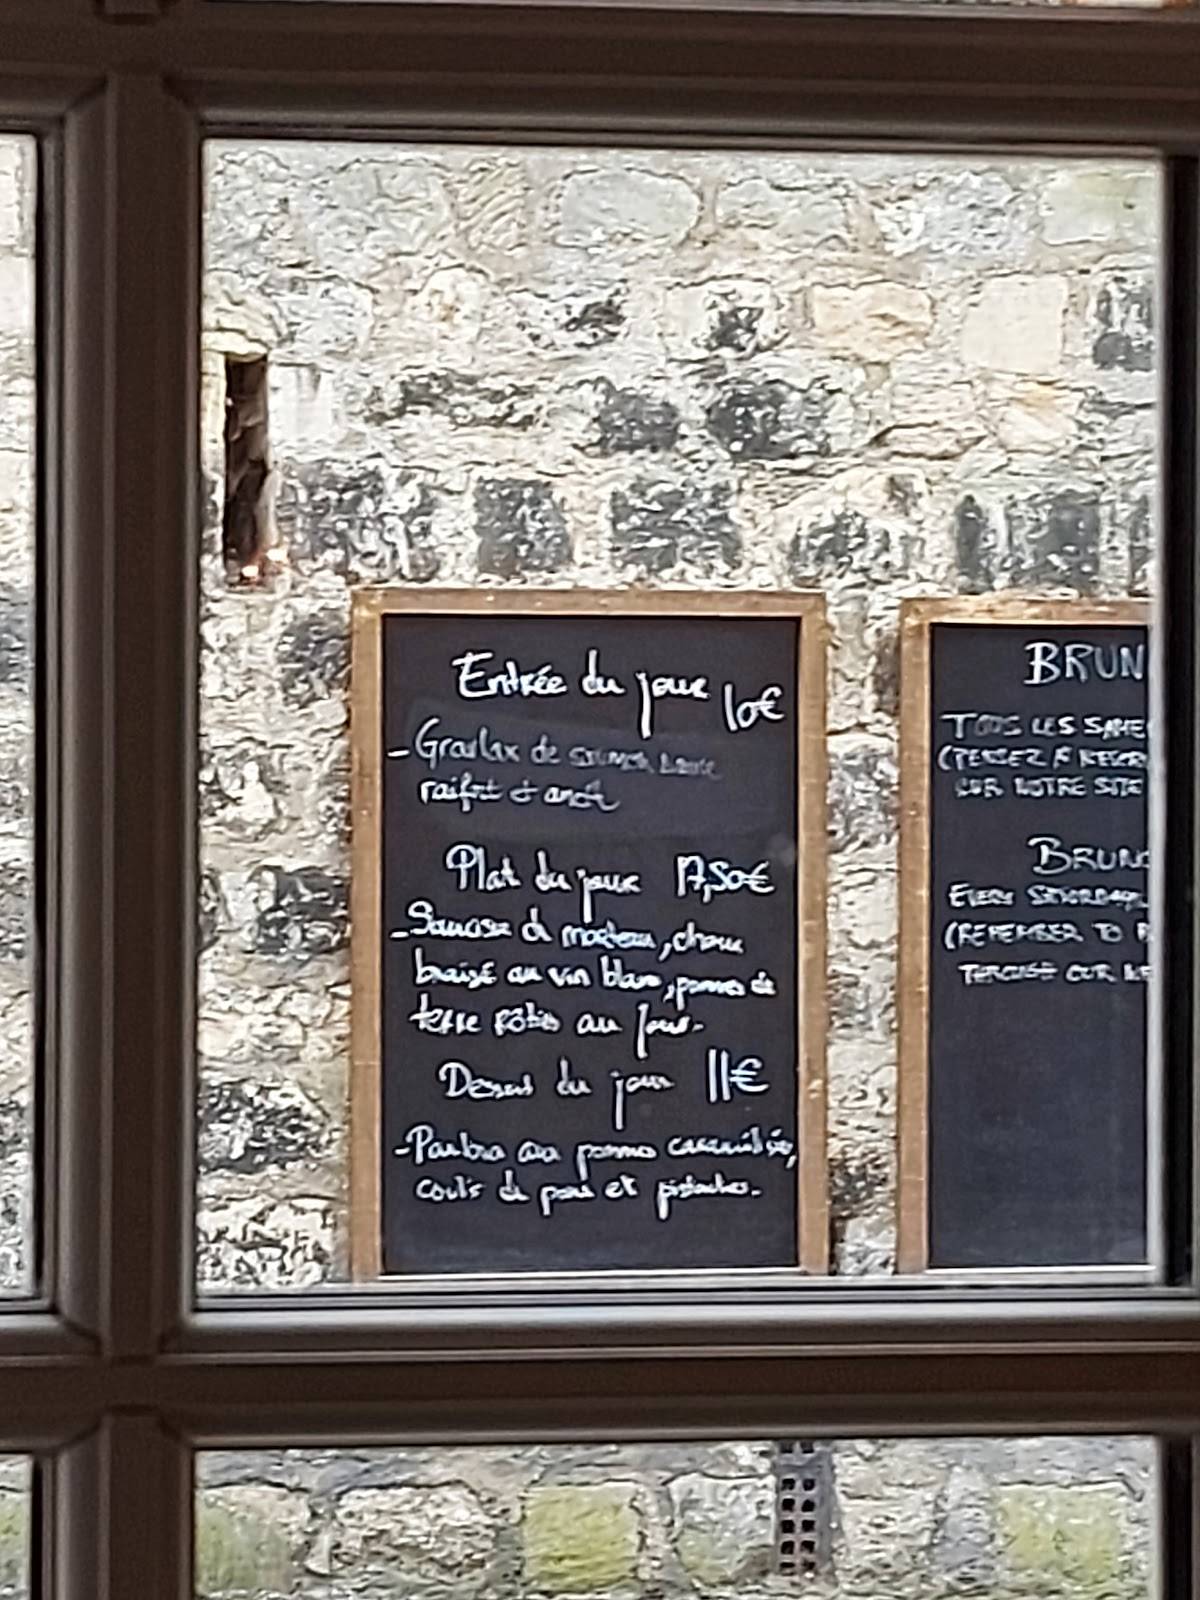 Entrée du jour 10€
- Gravlax de saumon, sauce
raifort & aneth
Plat du jour 17,50€
- Saucisse de morteau, choux
braisé au vin blanc, pommes de
terre rôties au four.
Dessert du jour 11€
- Pavlova aux pommes caramélisées,
coulis de poire et pistaches.
BRUN
TOUS LES SAME
(PENSEZ À RESER
SUR NOTRE SITE
BRUNC
EVERY SATURDAY
(REMEMBER TO B
THROUGH OUR WE